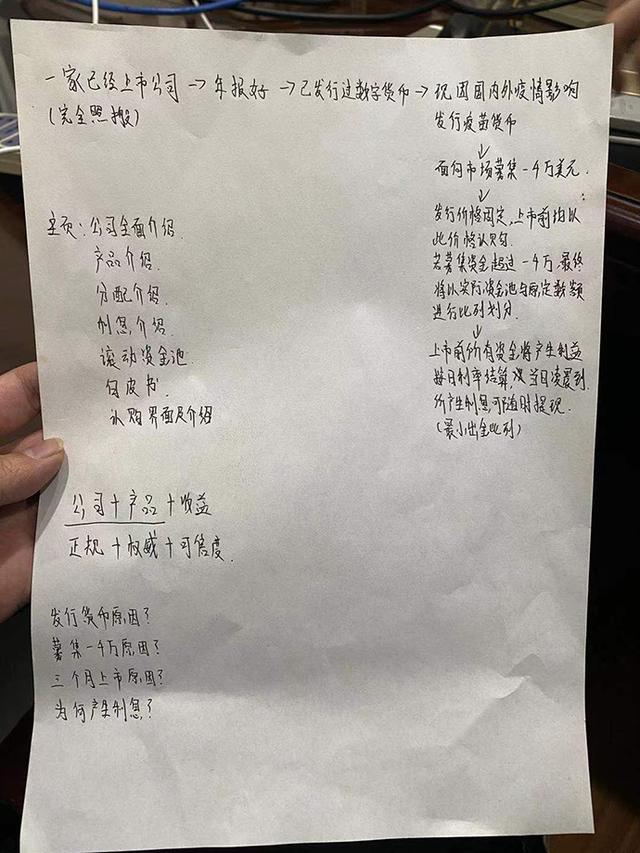 一家已经上市公司 → 年报好 → 已发行过数字货币 → 现因国内外疫情影响
(完全照搬)
发行疫苗货币
↓
面向市场募集一千万美元.
↓
发行价格固定,上市前均以
此价格认购.
若募集资金超过一千万,最终
将以实际资金池与原定数额
进行比列划分.
↓
上市前所有资金将产生利益
按日利率结算 当日凌晨到.
所产生利息可随时提现.
(最小出金比列)
主页: 公司全面介绍
产品介绍.
分配介绍.
利息介绍.
滚动资金池.
白皮书.
认购界面及介绍
公司+产品+收益
正规+权威+可信度.
发行货币原因?
募集一千万原因?
三个月上市原因?
为何产生利息?